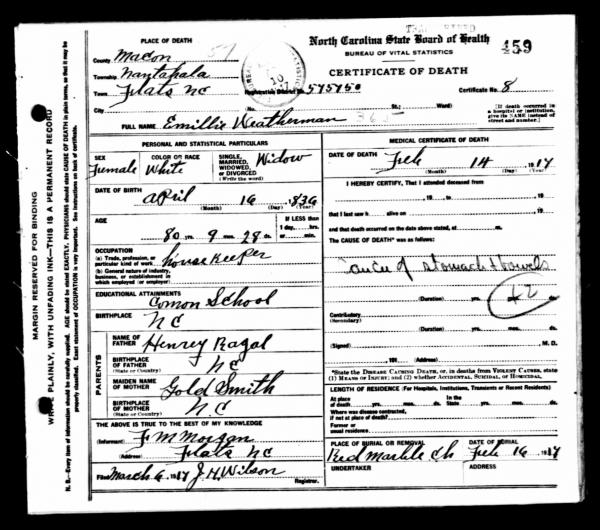 North Carolina State Board of Health
BUREAU OF VITAL STATISTICS
459
CERTIFICATE OF DEATH
PLACE OF DEATH
County Macon 57
Township Nantahala
Town Flats NC Registration District No. 575750 Certificate No. 8
City No. St.; Ward)
[If death occurred in a hospital or institution, give its NAME instead of street and number.]
FULL NAME Emillie Weatherman
PERSONAL AND STATISTICAL PARTICULARS
SEX Female
COLOR OR RACE White
SINGLE, MARRIED, WIDOWED, or DIVORCED (Write the word) Widow
DATE OF BIRTH April 16 1836
(Month) (Day) (Year)
AGE 80 yrs. 9 mos. 28 ds.
If LESS than 1 day, hrs. or min.
OCCUPATION
(a) Trade, profession, or particular kind of work house keeper
(b) General nature of industry, business, or establishment in which employed (or employer)
EDUCATIONAL ATTAINMENTS Comon School
BIRTHPLACE NC
(State or Country)
PARENTS
NAME OF FATHER Henrey Ragal
BIRTHPLACE OF FATHER NC
(State or Country)
MAIDEN NAME OF MOTHER Gold Smith
BIRTHPLACE OF MOTHER NC
(State or Country)
THE ABOVE IS TRUE TO THE BEST OF MY KNOWLEDGE
(Informant) F M Morgan
(Address) Flats NC
Filed March 6 1917 J. H. Wilson
Registrar.
MEDICAL CERTIFICATE OF DEATH
DATE OF DEATH Feb 14 1917
(Month) (Day) (Year)
I HEREBY CERTIFY, That I attended deceased from
, 19 , to , 19
that I last saw h alive on , 19
and that death occurred on the date above stated, at m.
The CAUSE OF DEATH* was as follows:
of stomach & bowels
42
(Duration) yrs. mos. ds.
Contributory
(Secondary)
(Duration) yrs. mos. ds.
(Signed) M. D.
, 191 (Address)
*State the DISEASE CAUSING DEATH, or, in deaths from VIOLENT CAUSES, state (1) MEANS OF INJURY; and (2) whether ACCIDENTAL, SUICIDAL, OR HOMICIDAL.
LENGTH OF RESIDENCE (For Hospitals, Institutions, Transients or Recent Residents)
At place of death yrs. mos. ds. In the State yrs. mos. ds.
Where was disease contracted, if not at place of death?
Former or usual residence
PLACE OF BURIAL OR REMOVAL Red Marble Ch
DATE OF BURIAL Feb 16 1917
UNDERTAKER
ADDRESS
MARGIN RESERVED FOR BINDING
WRITE PLAINLY, WITH UNFADING INK—THIS IS A PERMANENT RECORD
N. B.—Every item of information should be carefully supplied. AGE should be stated EXACTLY. PHYSICIANS should state CAUSE OF DEATH in plain terms, so that it may be properly classified. Exact statement of OCCUPATION is very important. See instructions on back of certificate.